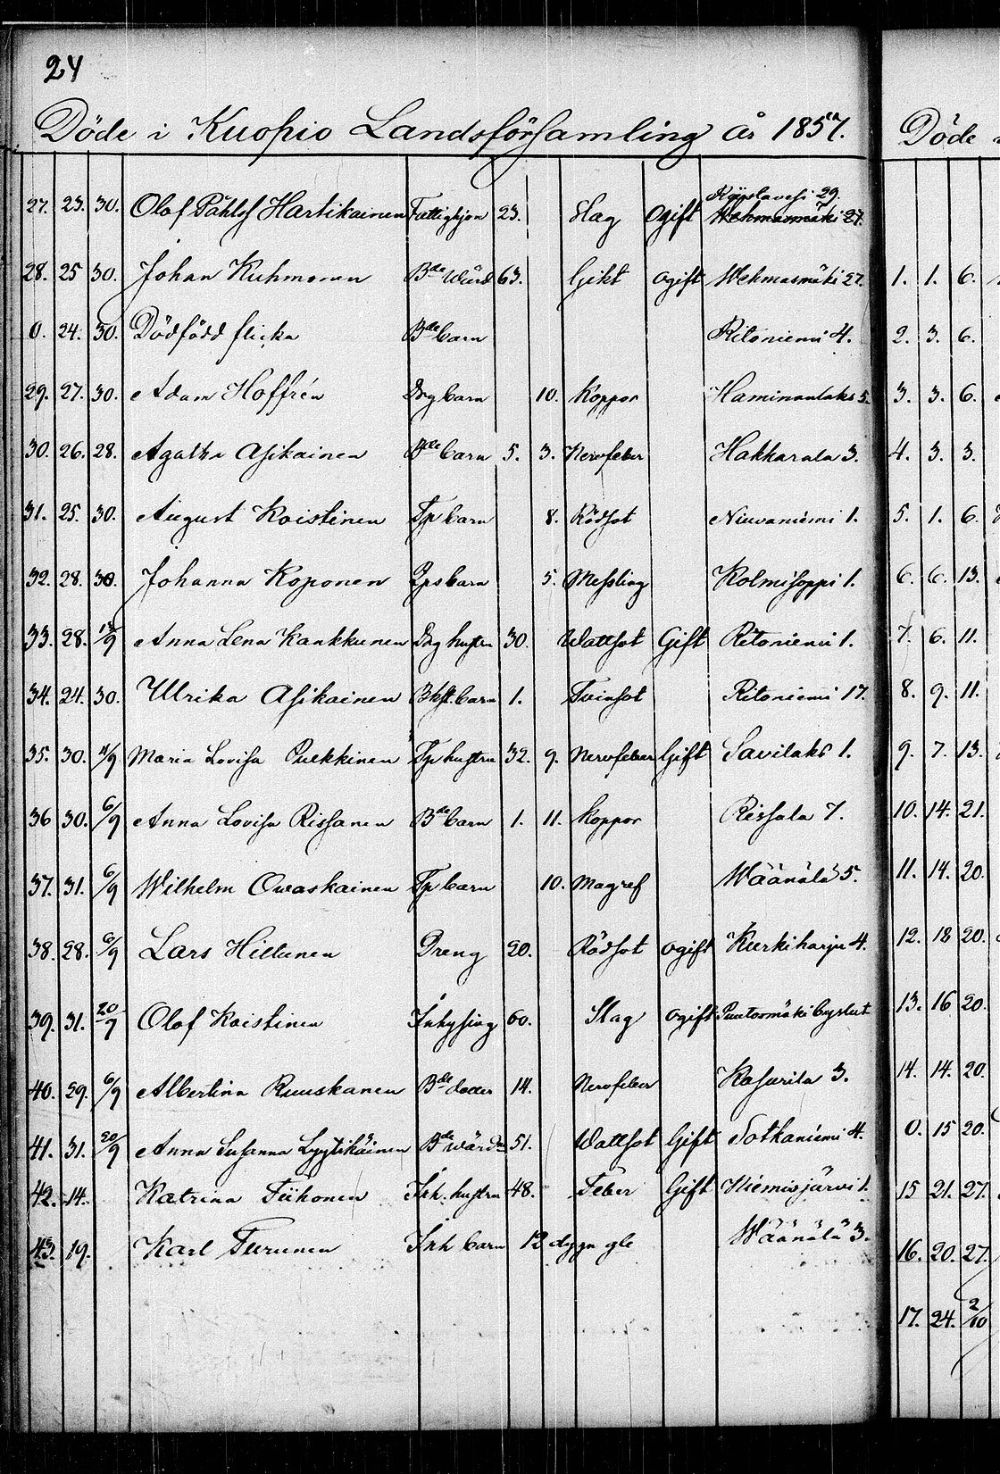 24
Döde i Kuopio Landsförsamling år 1857.
27. 23. 30. Olof Påhlsf Hartikainen Fattighjon 23. Slag Ogift Wehmasmäki 27.
28. 25 30. Johan Kuhmonen Bde Wärd 63. Gikt ogift Wehmasmäki 27.
0. 24. 30. Dödfödd flicka Bde barn Ritoniemi 4.
29. 27. 30. Adam Hoffrén Drg barn 10. Koppor Haminanlaks 5.
30. 26. 28. Agatha Asikainen Bde barn 5. 3. Nervfeber Hakkarala 3.
31. 25. 30. August Koistinen Tp barn 8. Rödsot Niuvaniemi 1.
32. 28. 30. Johanna Koponen barn 5. Messling Kolmisoppi 1.
33. 28. 13/9 Anna Lena Kankkunen Drg hustru 30. Wattsot Gift Ritoniemi 1.
34. 24. 30. Ulrika Asikainen barn 1. Tvinsot Ritoniemi 17.
35. 30. 4/9 Maria Lovisa Pukkinen Tp hustru 32. 9. Nervfeber Gift Savilaks 1.
36 30. 6/9 Anna Lovisa Rissanen Bde barn 1. 11. koppor Rissala 7.
37. 31. 6/9 Wilhelm Owaskainen Tp barn 10. Magref Wäänälä 5.
38. 28. 6/9 Lars Hiltunen Dreng 20. Rödsot ogift Kurkiharju 4.
39. 31. 20/9 Olof Koistinen Inhysing 60. Slag ogift Puutosmäki
40. 29. 6/9 Albertina Ruuskanen Bde dotter 14. Nervfeber Kasurila 3.
41. 31. 20/9 Anna Susanna Lyytikäinen Bde wärd 51. Wattsot Gift Sotkaniemi 4.
42. 14. Katrina Tiihonen Inh. hustru 48. Feber Gift Hiemisjärvi 1.
43. 19. Karl Turunen Inh barn 12 dygn gle Wäänälä 3.
Döde
1. 1. 6.
2. 3. 6.
3. 3. 6.
4. 3. 3.
5. 1. 6.
6. 6. 13.
7. 6. 11.
8. 9. 11.
9. 7. 13.
10. 14. 21.
11. 14. 20.
12. 18 20.
13. 16 20.
14. 14. 20.
0. 15 20.
15 21. 27.
16. 20. 27.
17. 24. 2/10